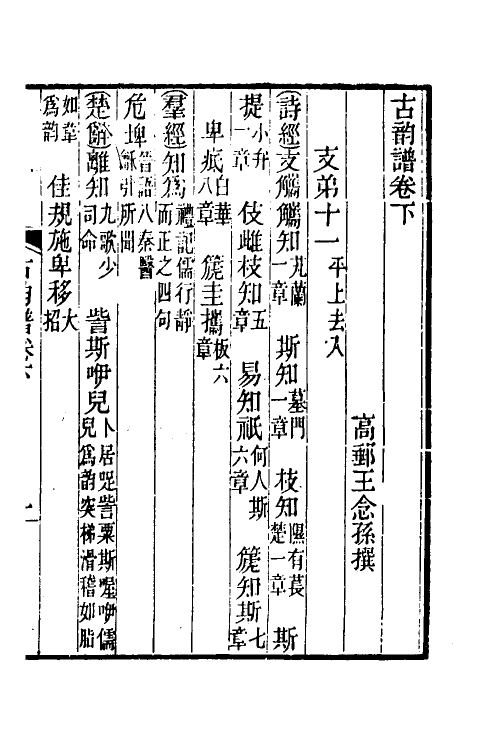 古韵譜卷下
高郵王念孫撰
支弟十一平上去入
詩經支觿觿知芄蘭一章 斯知墓門一章 枝知隰有萇楚一章 斯
提小弁一章 伎雌枝知五章 易知祇何人斯六章 篪知斯七章
卑疧白華八章 篪圭攜板六章
羣經知爲禮記儒行靜而正之四句
危埤晉語八秦醫龢引所聞
楚辭離知九歌少司命 訾斯咿兒卜居哫訾粟斯喔咿儒兒爲韵突梯滑稽如脂
如韋爲韵 佳規施卑移大招
古韵譜卷下